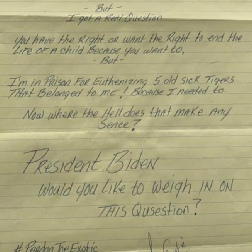 - But -
I got a Real Question
You have the Right or want the Right to end the
Life of a child Because you want to.
- But -
I'm in Prison For Euthenizing 5 old sick Tigers
That Belonged to me! Because I needed to.
Now where the Hell does that make Any
Sence?
President Biden
Would you like to weigh in on
This Qusestion?
# Pardon The Exotic